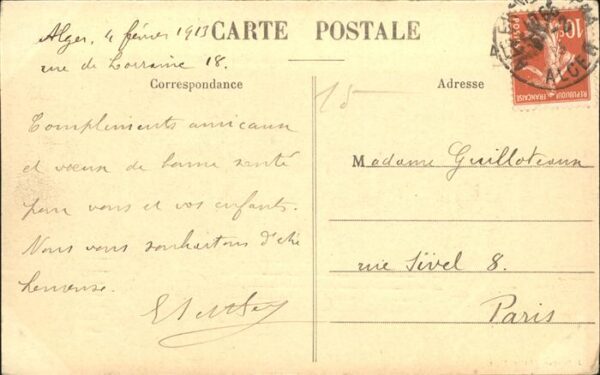 Alger, 4 février 1913
rue de Lorraine 18.
CARTE POSTALE
Correspondance
Compliments amicaux
et vœux de bonne santé
pour vous et vos enfants.
Nous vous souhaitons d'être
heureuse.
Adresse
15
Madame Guilloteaux
rue Sivel 8.
Paris
10c
POSTES
REPUBLIQUE FRANÇAISE
ALGER